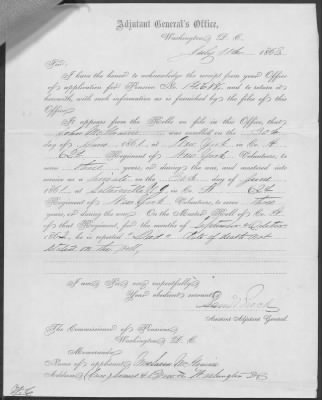 Adjutant General's Office,
Washington, D. C.
July 1863
Sir,
I have the honor to acknowledge the receipt from your Office
of application for Pension No. and to return it
herewith, with such information as is furnished by the files of this
Office.
It appears from the Rolls on file in this Office, that
John was enrolled on the 30th
day of June, 1861, at New York, in Co. H
62d Regiment of New York Volunteers, to
serve three years, or during the war, and mustered into
service as a on the 30th day of June,
1861, at in Co. H 62d
Regiment of New York Volunteers, to serve three
years, or during the war. On the Muster Roll of Co. H
of that Regiment, for the months of September & October
1862, he is reported "Dead" Date of death not
stated on the roll,
I am, Sir, very respectfully,
Your obedient servant,
Assistant Adjutant General.
The Commissioner of Pensions,
Washington, D. C.
Memoranda:
Name of applicant,
Address, Washington